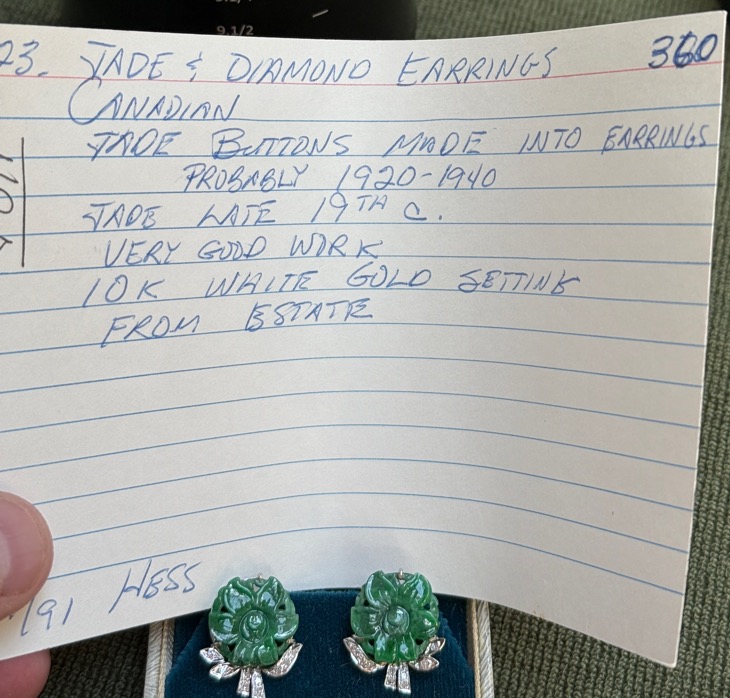 9.1/2
23. JADE & DIAMOND EARRINGS 360
CANADIAN
JADE BUTTONS MADE INTO EARRINGS
PROBABLY 1920-1940
JADE LATE 19TH C.
VERY GOOD WORK
10K WHITE GOLD SETTING
FROM ESTATE
/91 HESS